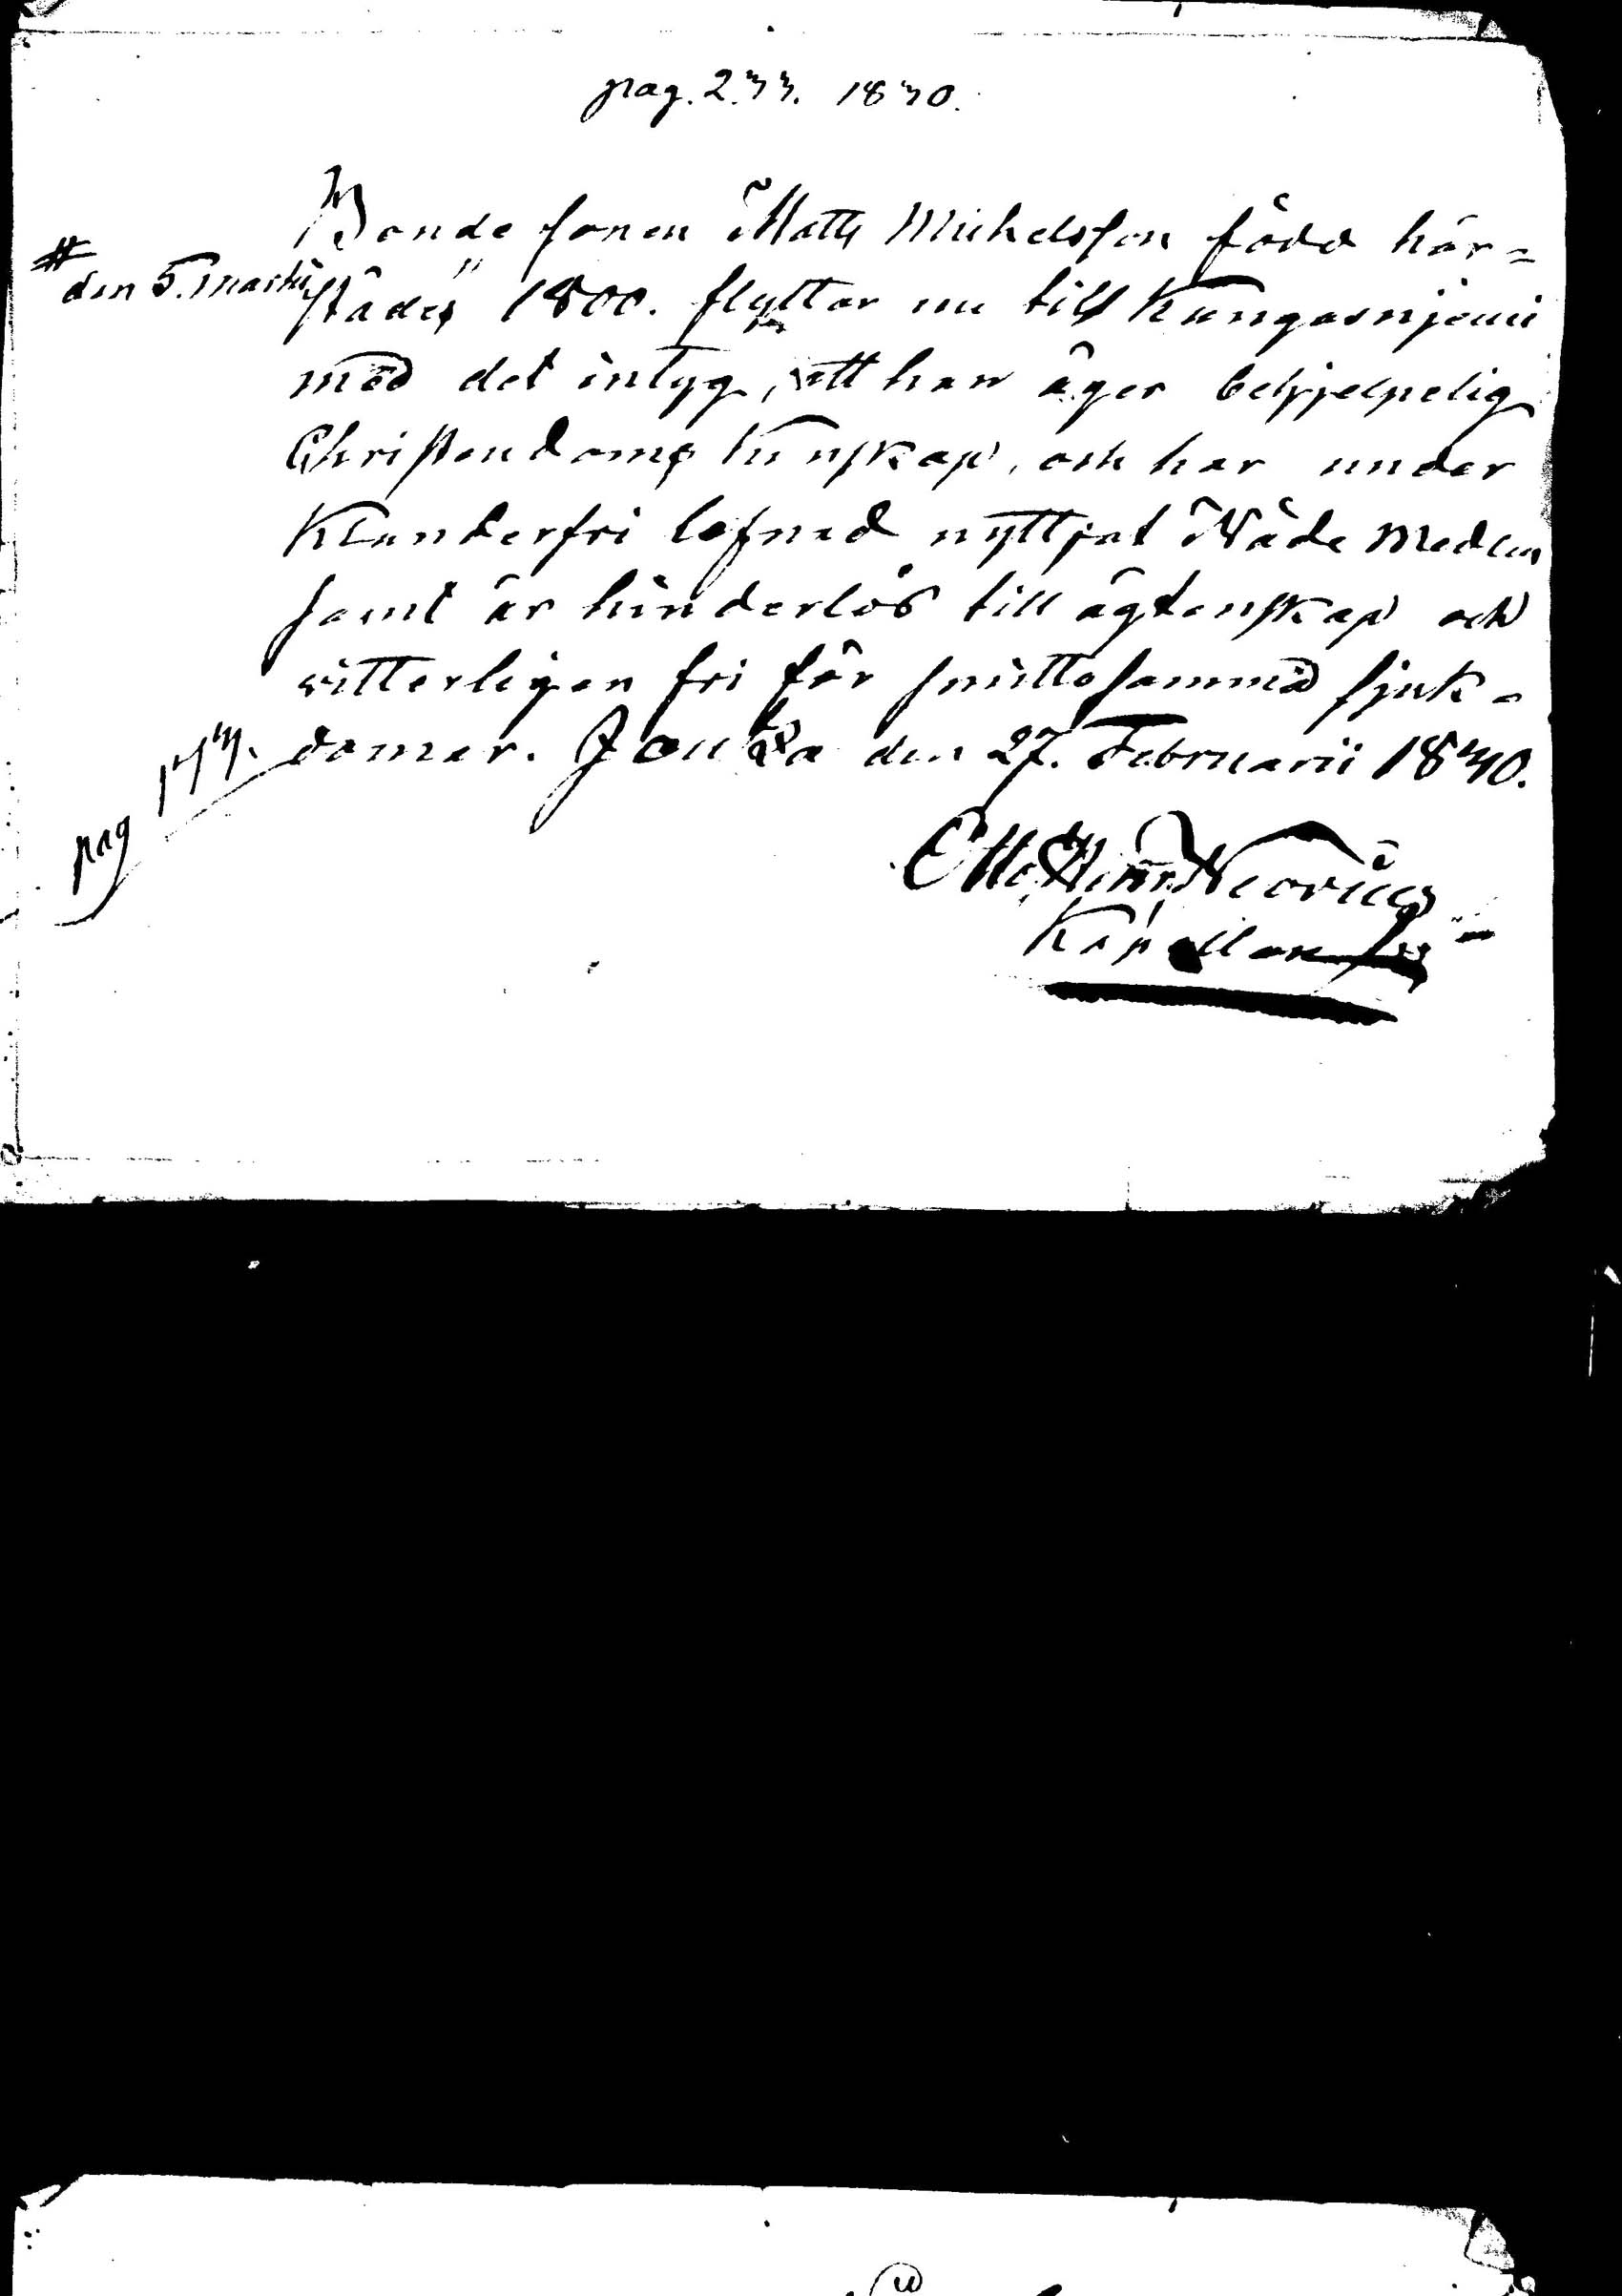 pag. 233. 1830.
Bonde sonen Matts Michelsson född här=
# den 5. Martii
städes " 1800. flyttar nu till Kangasnjemi
med det intyg, att han äger behjelpelig
Christendoms kunskap, och har under
Klanderfri lefnad nyttjat Nåde Medlen
samt är hinderlös till ägtenskap och
vitterligen fri för smittosamma sjuk-
domar. Joutza den 27. Februarii 1830.
pag
Neovius
Kapellan